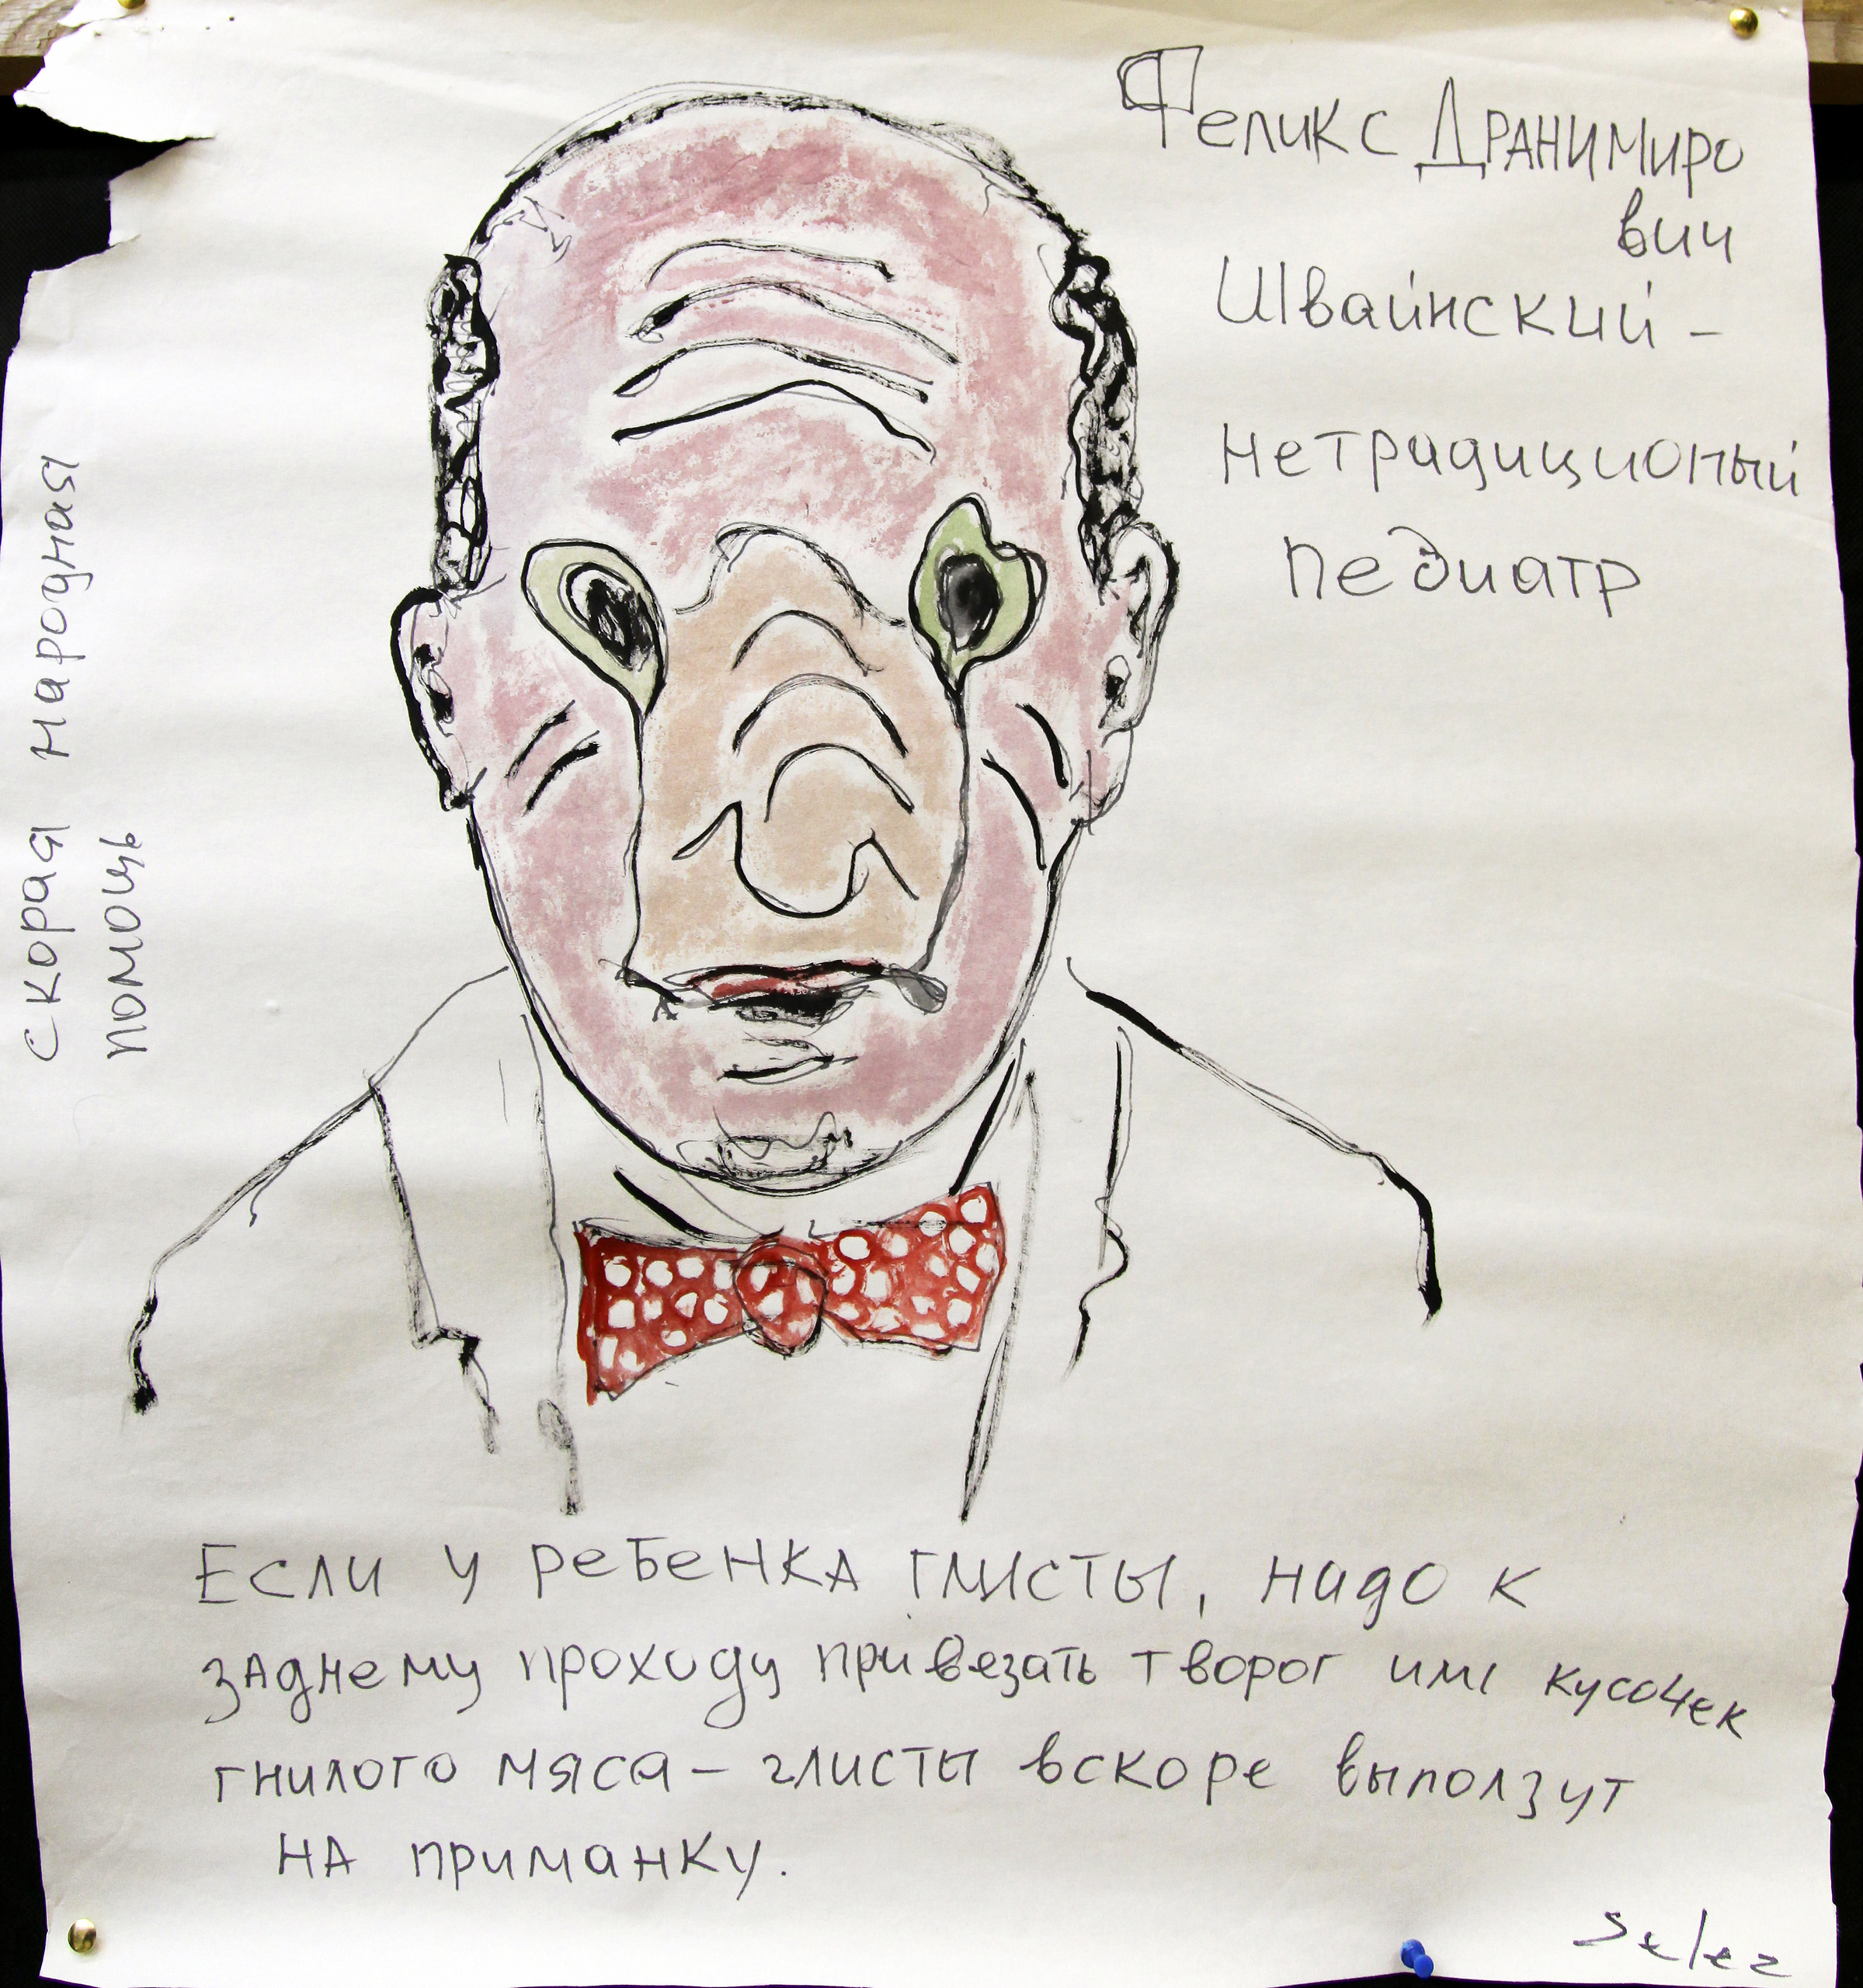 Феликс Дранимиро
вич
Швайнский –
нетрадиционый
педиатр
скорая народная
помощь
Если у ребенка глисты, надо к
заднему проходу привязать творог или кусочек
гнилого мяса – глисты вскоре выползут
на приманку.
Selez